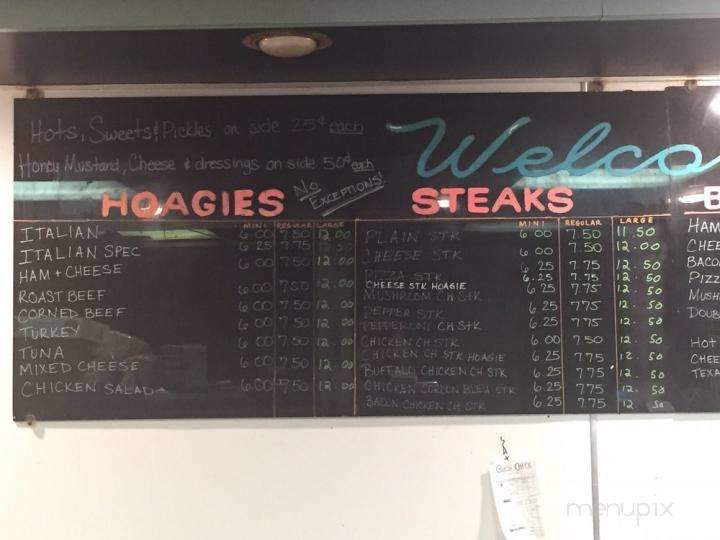 Hots, Sweets, Pickles on side 25¢ each
Honey Mustard, Cheese & dressings on side 50¢ each
No EXCEPTIONS!
Welco
HOAGIES
MINI REGULAR LARGE
ITALIAN 6 00 7 50 12 00
ITALIAN SPEC 6 25 7 75
HAM + CHEESE 6 00 7 50 12 00
ROAST BEEF 6 00 7 50 12 00
CORNED BEEF 6 00 7 50 12 00
TURKEY 6 00 7 50 12 00
TUNA 6 00 7 50 12 00
MIXED CHEESE
CHICKEN SALAD 6 00 7 50 12 00
STEAKS
MINI REGULAR LARGE
PLAIN STK 6 00 7 50 11 50
CHEESE STK 6 00 7 50 12 00
PIZZA STK 6 25 7 75 12 50
CHEESE STK HOAGIE 6 25 7 75 12 50
MUSHROOM CH STK 6 25 7 75 12 50
PEPPER STK 6 25 7 75 12 50
PEPPERONI CH STK 6 25 7 75 12 50
CHICKEN CH STK 6 00 7 50 12 50
CHICKEN CH STK HOAGIE 6 25 7 75 12 50
BUFFALO CHICKEN CH STK 6 25 7 75 12 50
CHICKEN CORDON BLEU STK 6 25 7 75 12 50
BACON CHICKEN CH STK 6 25 7 75 12 50
B
HAM
CHEE
BACO
PIZZ
MUSH
DOUB
HOT
CHEE
TEXA
menupix